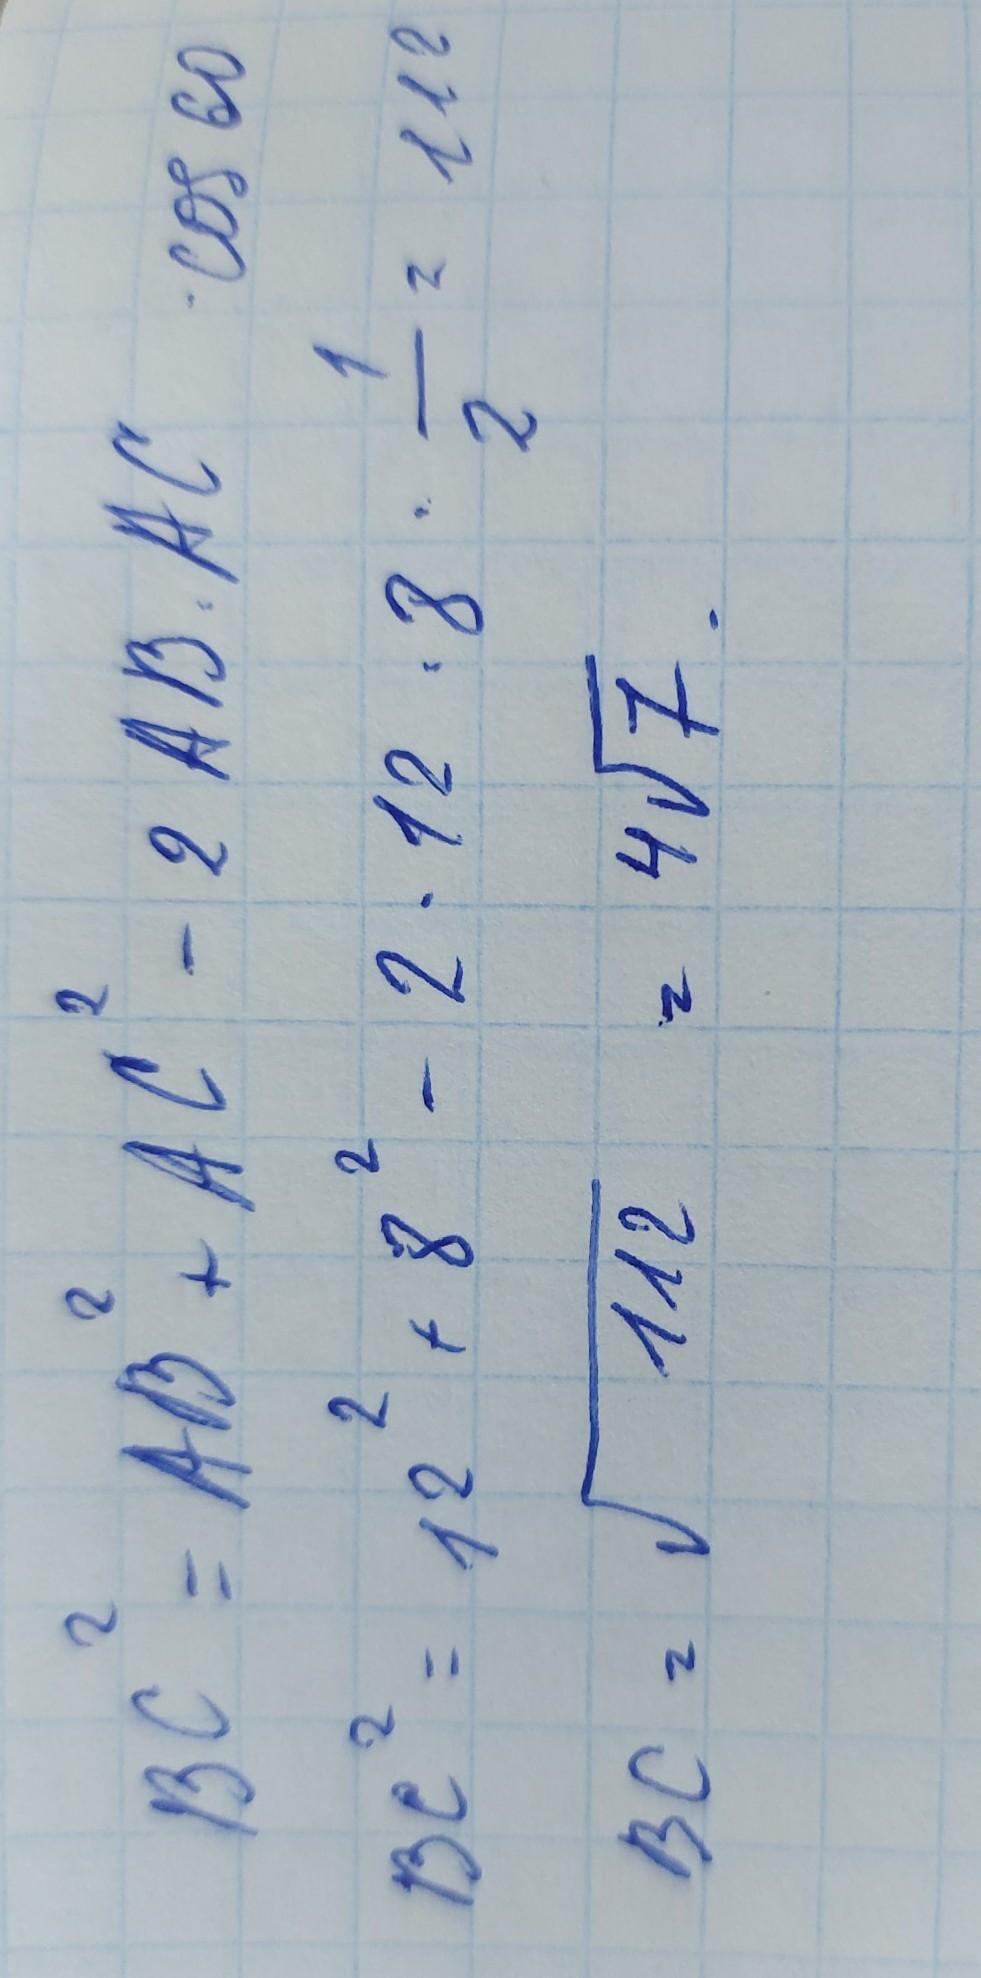 BC² = AB² + AC² - 2 AB · AC · cos 60
BC² = 12² + 8² - 2 · 12 · 8 · 1/2 = 112
BC = √112 = 4√7.